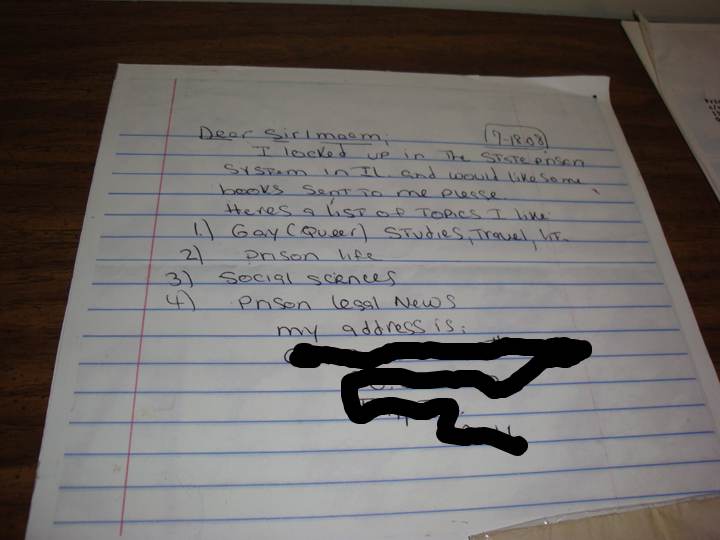 7-18-08
Dear Sir/maem,
I locked up in The STSTe prison
System in IL. and would like some
books sent To me plesse.
Heres a LIST of Topics I like
1.) Gay (Queer) STudies, Travel, LiT.
2) prison life
3) Social sciences
4) prison legal News
my address is: